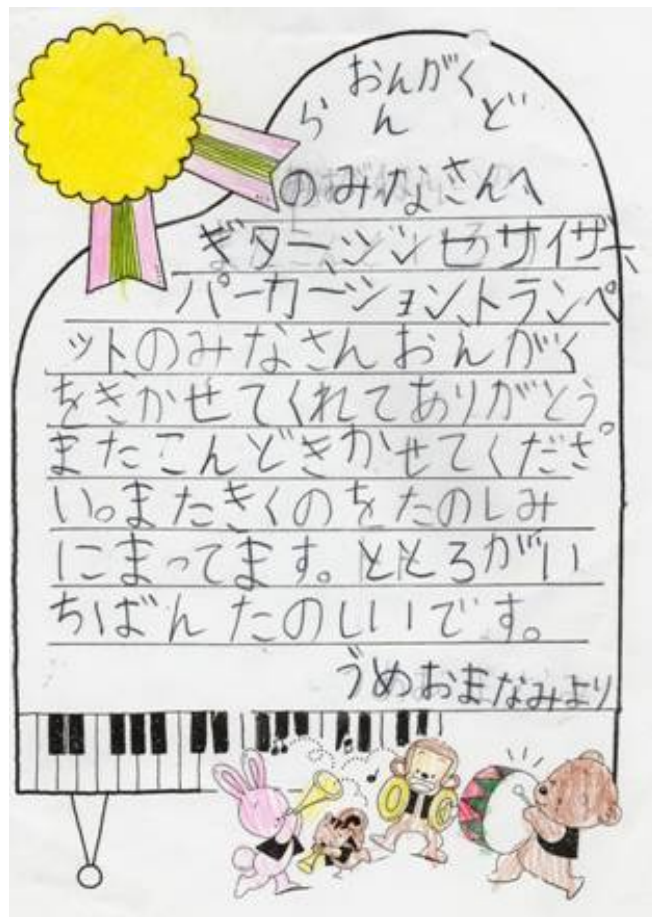 おんがく
らんど
のみなさんへ
ギター、シンセサイザー、
パーカーション、トランペ
ットのみなさん おんがく
をきかせてくれてありがとう。
またこんどきかせてくださ
い。またきくのをたのしみ
にまってます。ととろがい
ちばんたのしいです。
うめおまなみより